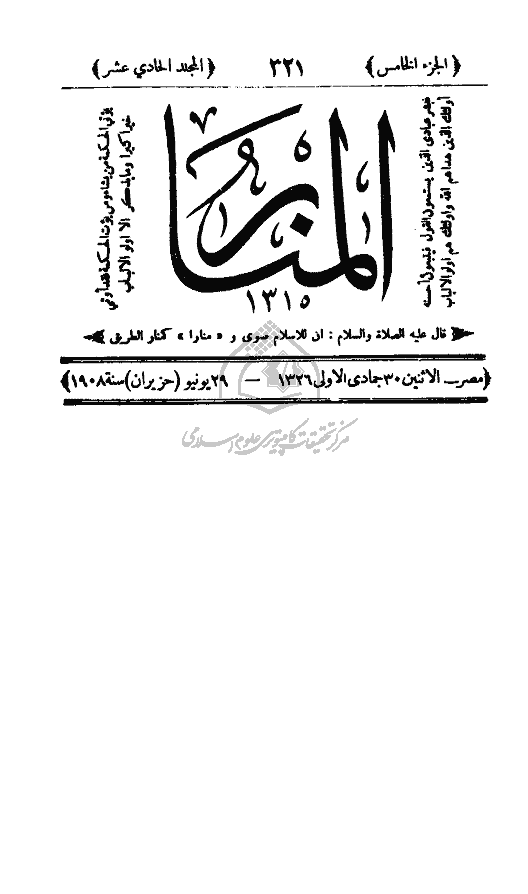 ﴿ الجزء الخامس ﴾ ٣٢١ ﴿ المجلد الحادي عشر ﴾
فبشر عبادي الذين يستمعون القول فيتبعون أحسنه
أولئك الذين هداهم الله وأولئك هم أولو الالباب
المنار
١٣١٥
يؤتي الحكمة من يشاء ومن يؤت الحكمة فقد أوتي
خيرا كثيرا وما يذكر الا أولو الالباب
﴿ قال عليه الصلاة والسلام : ان للاسلام صوى و « منارا » كمنار الطريق ﴾
﴿ مصر الاثنين ٣٠ جمادى الاولى ١٣٢٦ — ٢٩ يونيو ( حزيران ) سنة ١٩٠٨ ﴾
مرکز تحقیقات کامپیوتری علوم اسلامی